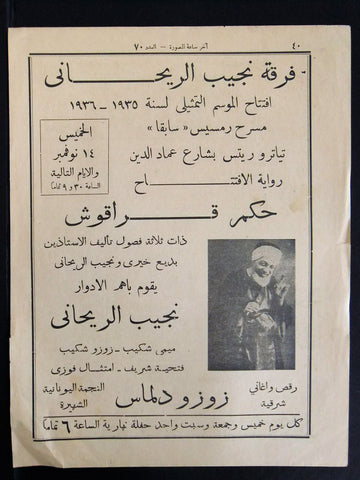 ٤٠
آخر ساعة المصورة — العدد ٧٠
فرقة نجيب الريحانى
افتتاح الموسم التمثيلى لسنة ١٩٣٥ - ١٩٣٦
مسرح رمسيس «سابقا»
تياترو ريتس بشارع عماد الدين
رواية الافتتاح
الخميس
١٤ نوفمبر
والايام التالية
الساعة ٣٠ و ٩ تماما
حكم قراقوش
ذات ثلاثة فصول تأليف الاستاذين
بديع خيرى ونجيب الريحانى
يقوم باهم الادوار
نجيب الريحانى
ميمى شكيب - زوزو شكيب
فتحية شريف - امتثال فوزى
رقص واغانى
شرقية
زوزو دلماس
النجمة اليونانية
الشهيرة
كل يوم خميس وجمعة وسبت واحد حفلة نهارية الساعة ٦ تماما